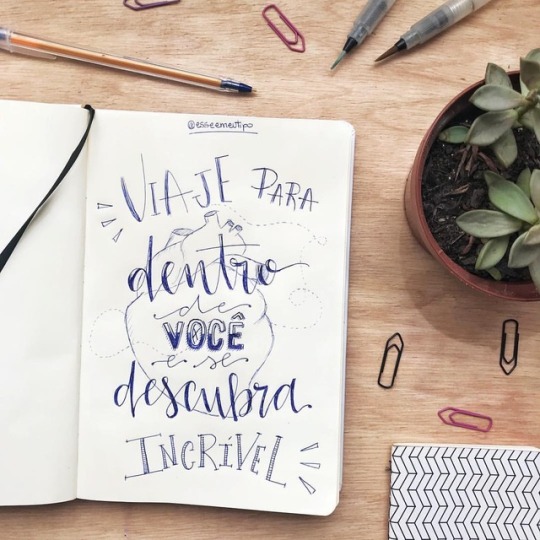 @esseemeutipo
VIAJE PARA
dentro
de
VOCÊ
e se
descubra
INCRÍVEL